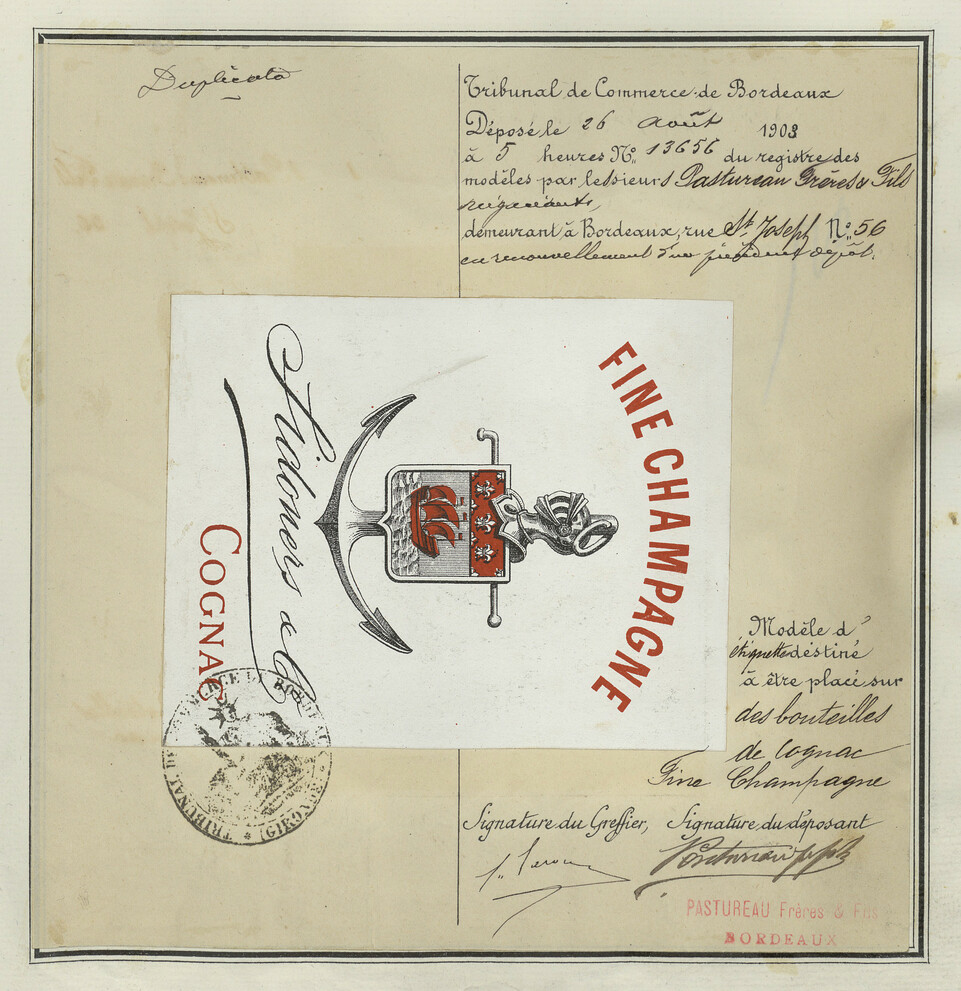 Duplicata
Tribunal de Commerce de Bordeaux
Déposé le 26 août 1903
à 5 heures No. 13656 du registre des
modèles par lessieurs Pastureau Frères & Fils
négociants,
demeurant à Bordeaux, rue St Joseph No. 56
en renouvellement d'un précédent dépôt.
FINE CHAMPAGNE
& Co
COGNAC
Modèle d'
étiquette destiné
à être placé sur
des bouteilles
de Cognac
Fine Champagne
Signature du Greffier, Signature du déposant
PASTUREAU Frères & Fils
BORDEAUX
TRIBUNAL DE COMMERCE DE BORDEAUX (GIRONDE)